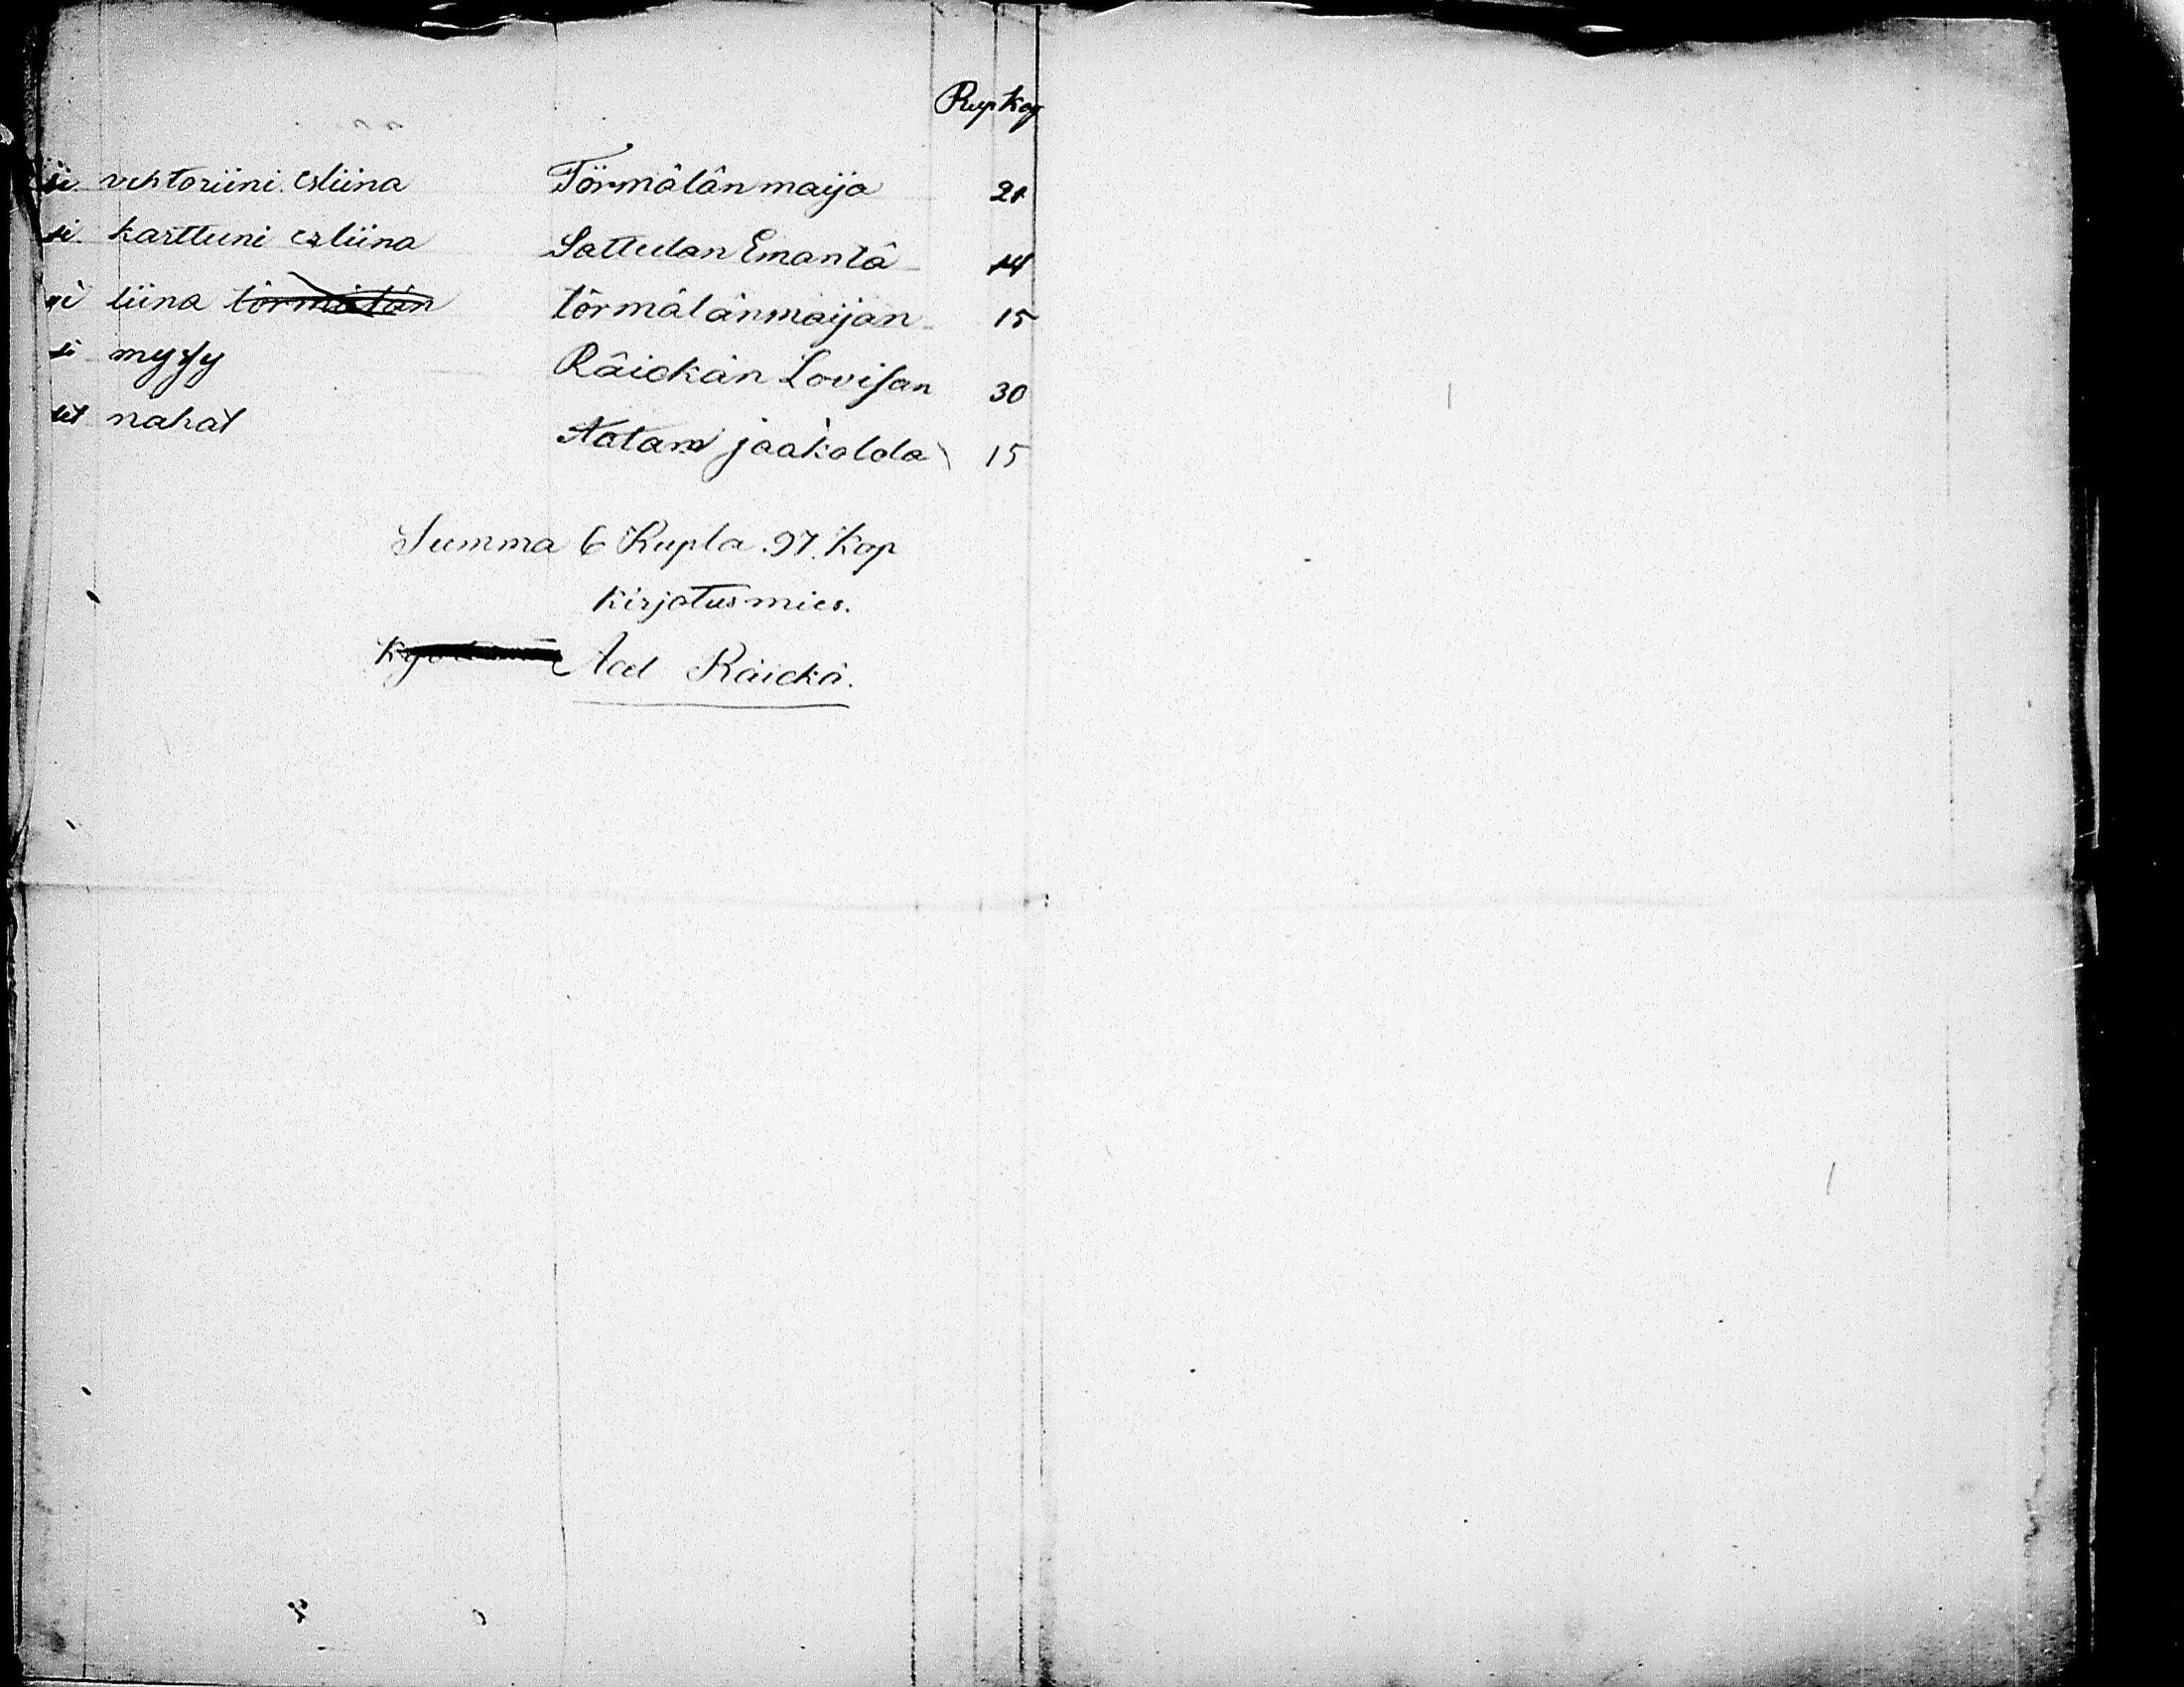 Rup Kop
si vihtoriini esliina Törmälän maija 21
si karttuni esliina Sattulan Emäntä 14
si liina törmälän törmälänmaijan 15
si myssy Räickän Lovisan 30
set nahat Aatami jaakolda 15
Summa 6 Rupla .97. Kop
Kirjotusmies.
Aad Räickä.